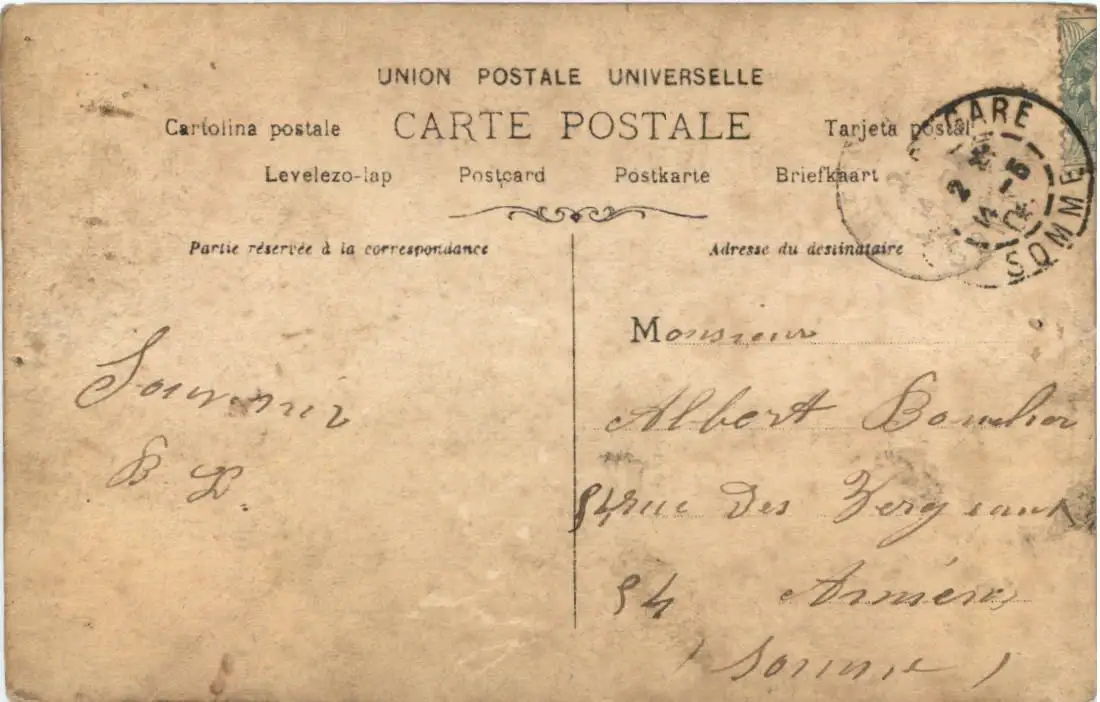 UNION POSTALE UNIVERSELLE
Cartolina postale CARTE POSTALE Tarjeta postal
Levelezo-lap Postcard Postkarte Briefkaart
GARE
SOMME
Partie réservée à la correspondance
Adresse du destinataire
Monsieur
Souvenir
Albert Boucher
B L.
54 rue Des Vergeaux
54 Amiens
(Somme)